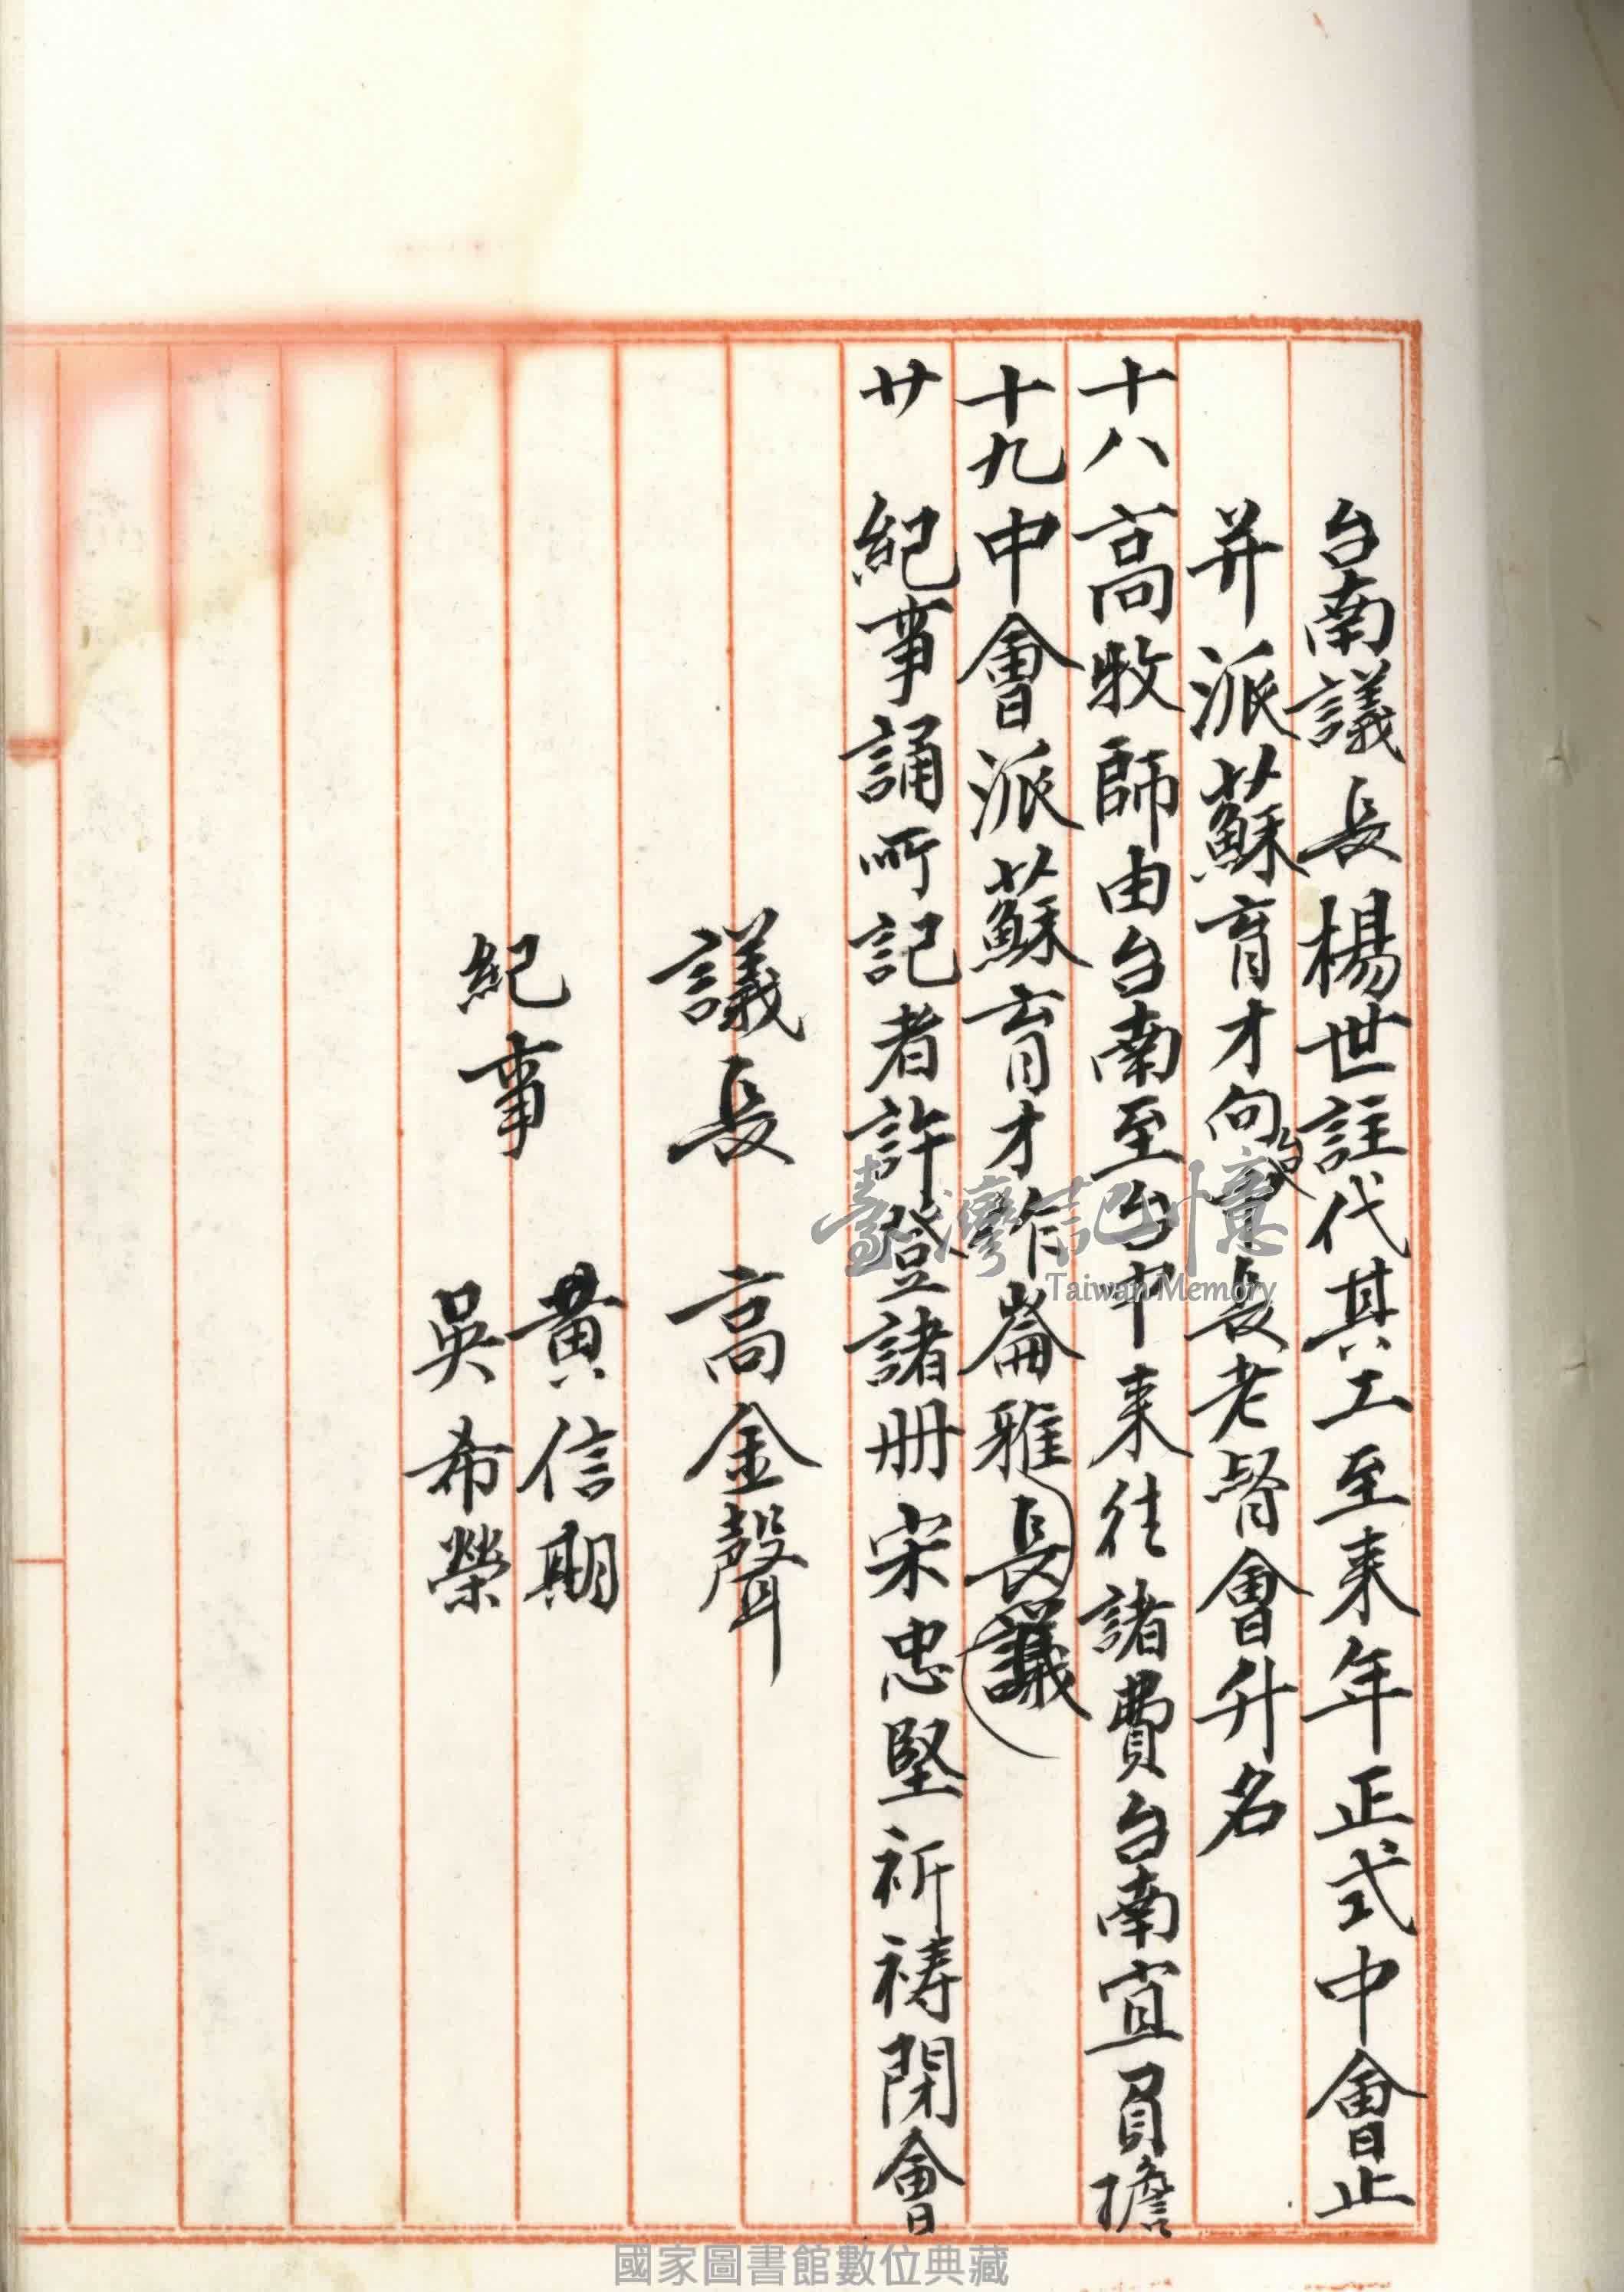 台南議長楊世註代其工至來年正式中會止
并派蘇育才向台中會長老督會升名
十八 高牧師由台南至台中來往諸費台南宜負擔
十九 中會派蘇育才作崙雅長議
廿 紀事誦所記者許登諸册宋忠堅祈禱閉會
議長 高金聲
紀事 黃信期
吳希榮
臺灣記憶
Taiwan Memory
國家圖書館數位典藏